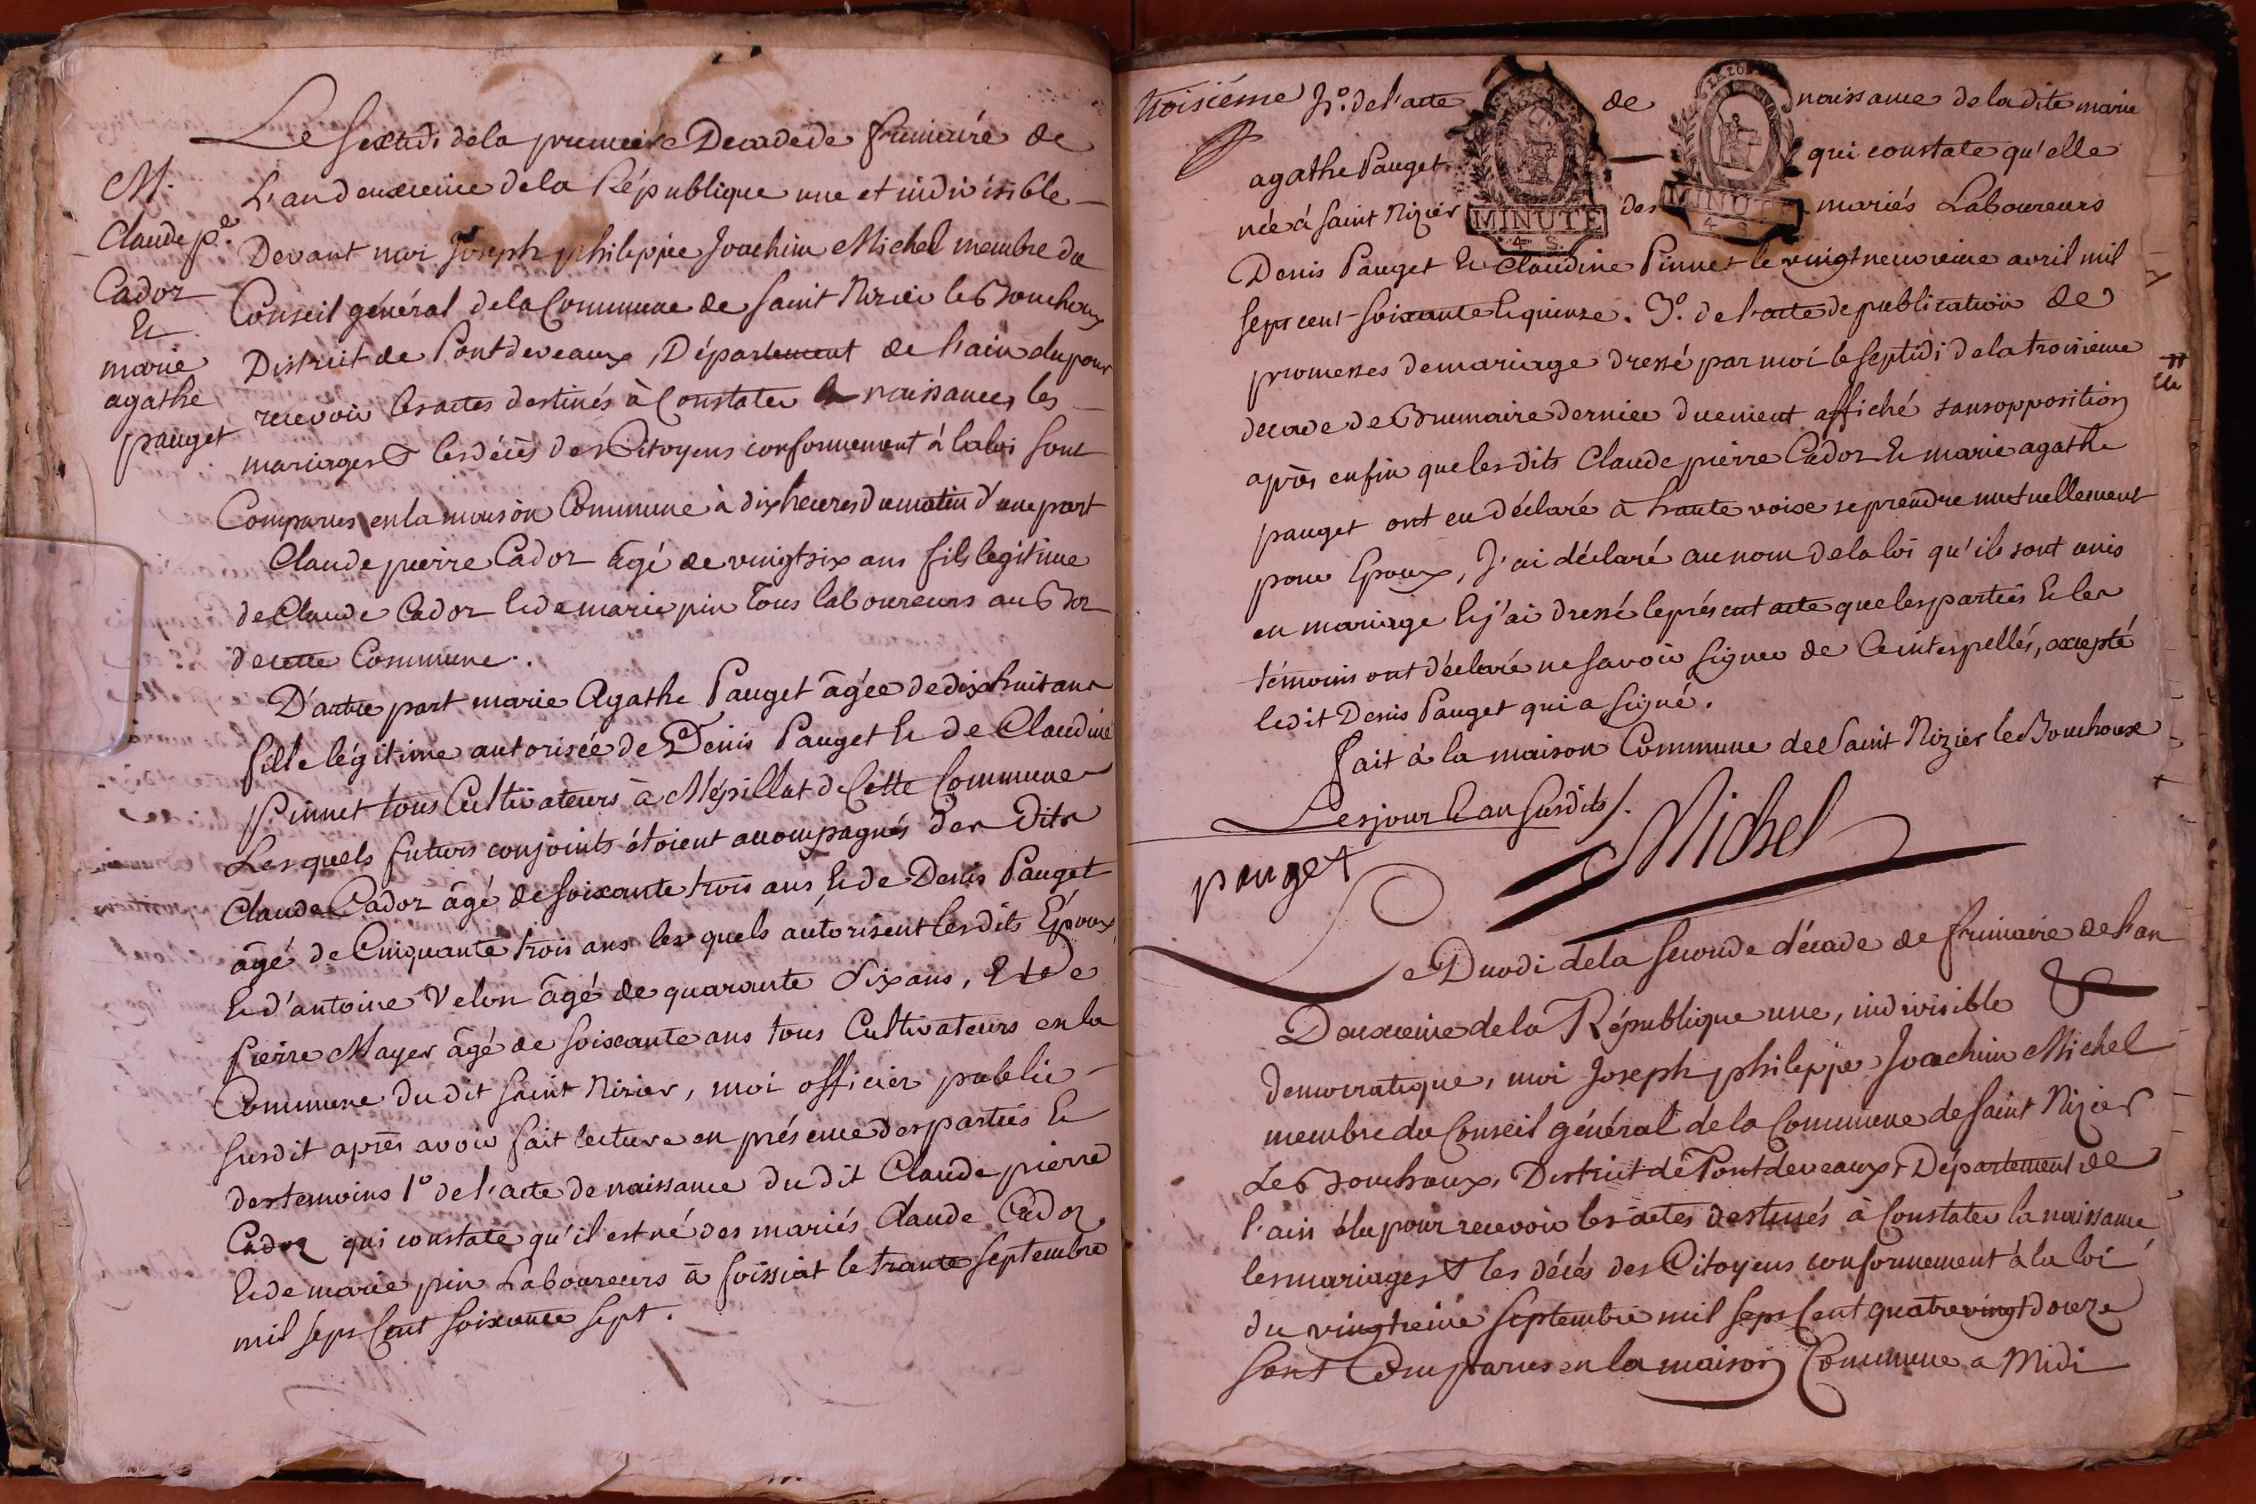 M.
Claude p.e
Cador
Et
marie
agathe
pauget
Le Sextidi dela premiere Decade de frimaire de
L'an deuxieme dela République une et indivisible
Devant moi Joseph philippe Joachim Michel membre du
Conseil général dela Commune de Saint Nizier le Bouchoux
District de Pontdevaux, Département de l'ain elu pour
recevoir les actes destinés à Constater la naissance, les
mariages & les décès des Citoyens conformement à la loi sont
Comparus en la maison Commune à dix heures du matin d'une part
Claude pierre Cador âgé de vingt six ans fils legitime
de Claude Cador et de marie pin tous laboureurs au Bor
de cette Commune.
D'autre part marie Agathe Pauget âgée de dix huit ans
fille légitime autorisée de Denis Pauget Et de Claudine
Pinnet tous Cultivateurs à Mépillat de Cette Commune
Lesquels futurs conjoints étoient accompagnés des dits
Claude Cador âgé de Soixante trois ans Et de Denis Pauget
âgé de Cinquante trois ans les quels autorisent les dits Epoux,
Et d'antoine Velon âgé de quarante Six ans, Et de
Pierre Mayer âgé de Soixante ans tous Cultivateurs en la
Commune du dit Saint Nizier, moi officier public
Susdit après avoir fait lecture en présence des parties Et
des temoins 1° de l'acte de naissance du dit Claude pierre
Cador qui constate qu'il est né des mariés Claude Cador
Et de marie pin Laboureurs à foissiat le trante Septembre
mil Sept Cent Soixante Sept.
troisiéme 2° de l'acte de naissance de la dite marie
agathe Pauget — qui constate qu'elle
née à Saint Nizier des mariés Laboureurs
MINUTE
4 S.
MINUTE
4 S.
Denis Pauget Et Claudine Pinnet le vingt neuvieme avril mil
Sept cent Soixante Et quinze. 3°. de l'acte de publication de
promesses de mariage dressé par moi le Septidi de la troisieme
decade de Brumaire dernier duement affiché sans opposition
après enfin que les dits Claude pierre Cador Et marie agathe
pauget ont eu déclaré à haute voix se prendre mutuellement
pour Epoux, J'ai déclaré au nom de la loi qu'ils sont unis
en mariage Et j'ai dressé le présent acte que les parties Et les
témoins ont déclaré ne Savoir Signer de Ce interpellés, excepté
ledit Denis Pauget qui a Signé.
fait à la maison Commune de Saint Nizier le Bouchoux
Les jour Et an Susdits/.
pauget
Michel
Le Duodi de la Seconde décade de frimaire de l'an
Deuxieme de la République une, indivisible &
democratique, moi Joseph philippe Joachim Michel
membre du Conseil général de la Commune de Saint Nizier
Le Bouchoux, District de Pontdevaux, Département de
l'ain élu pour recevoir les actes destinés à Constater la naissance,
les mariages & les décés des Citoyens conformement à la loi
du vingtieme Septembre mil Sept Cent quatre vingt douze
Sont Comparus en la maison Commune a Midi